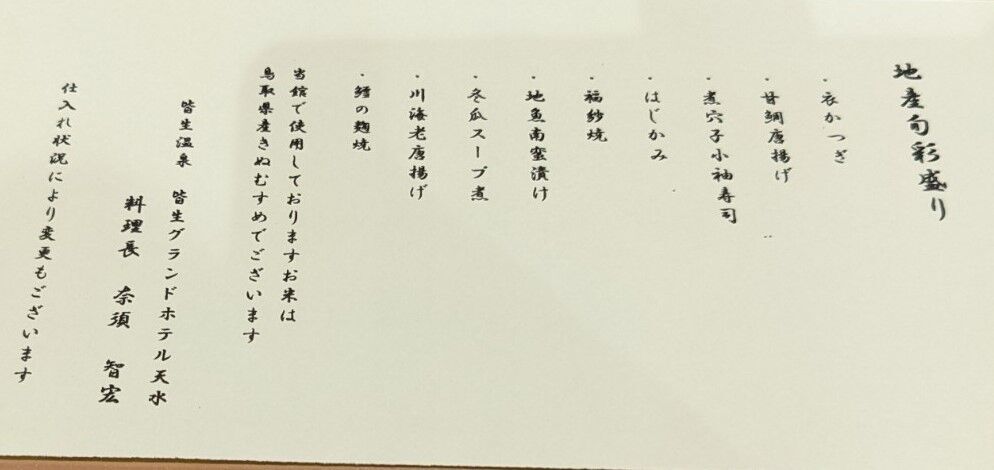 地産旬彩盛り
・衣かつぎ
・甘鯛唐揚げ
・煮穴子小袖寿司
・はじかみ
・福紗焼
・地魚南蛮漬け
・冬瓜スープ煮
・川海老唐揚げ
・鱈の麹焼
当館で使用しておりますお米は
鳥取県産きぬむすめでございます
皆生温泉 皆生グランドホテル天水
料理長 奈須 智宏
仕入れ状況により変更もございます